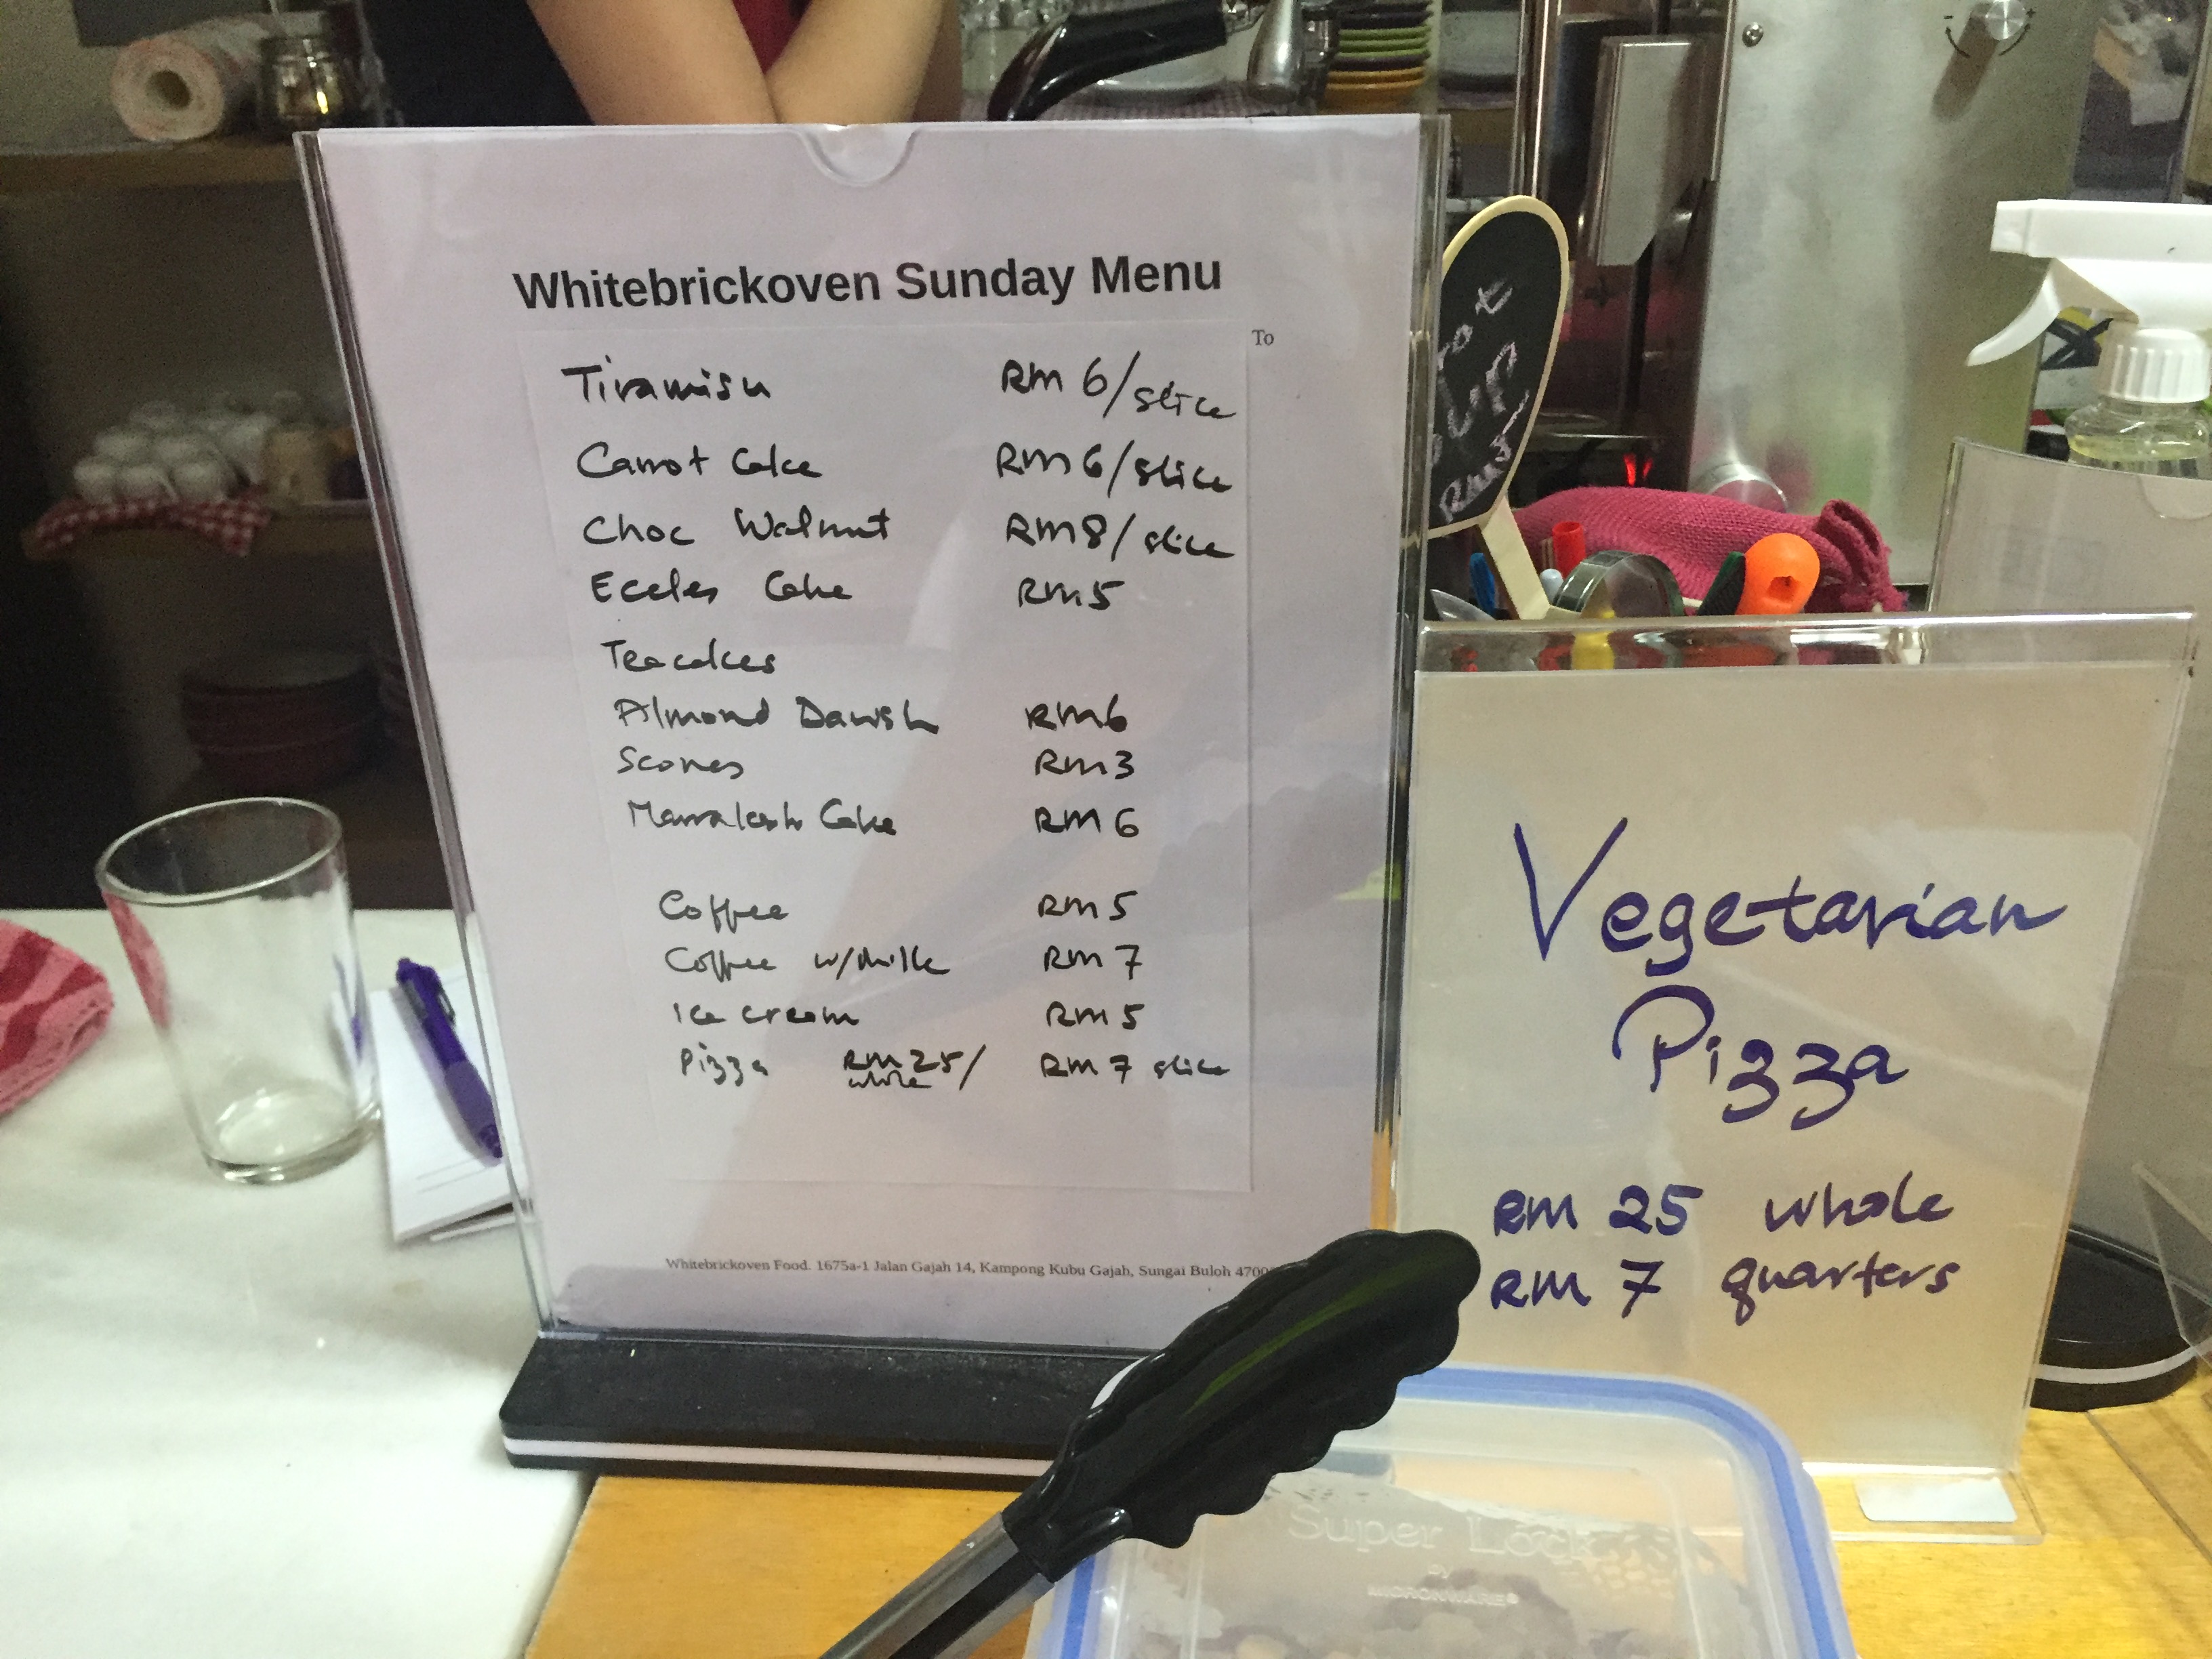 Whitebrickoven Sunday Menu
To
Tiramisu RM 6/slice
Carrot Cake RM 6/slice
Choc Walnut RM8/slice
Eccles Cake RM5
Teacakes
Almond Danish RM6
Scones RM3
Marrakesh Cake RM 6
Coffee RM 5
Coffee w/milk RM 7
Ice cream RM 5
Pizza RM 25/ RM 7 slice
whole
Whitebrickoven Food. 1675a-1 Jalan Gajah 14, Kampong Kubu Gajah, Sungai Buloh
Vegetarian
Pizza
RM 25 whole
RM 7 quarters
Super Lock
BY
MICRONWARE®